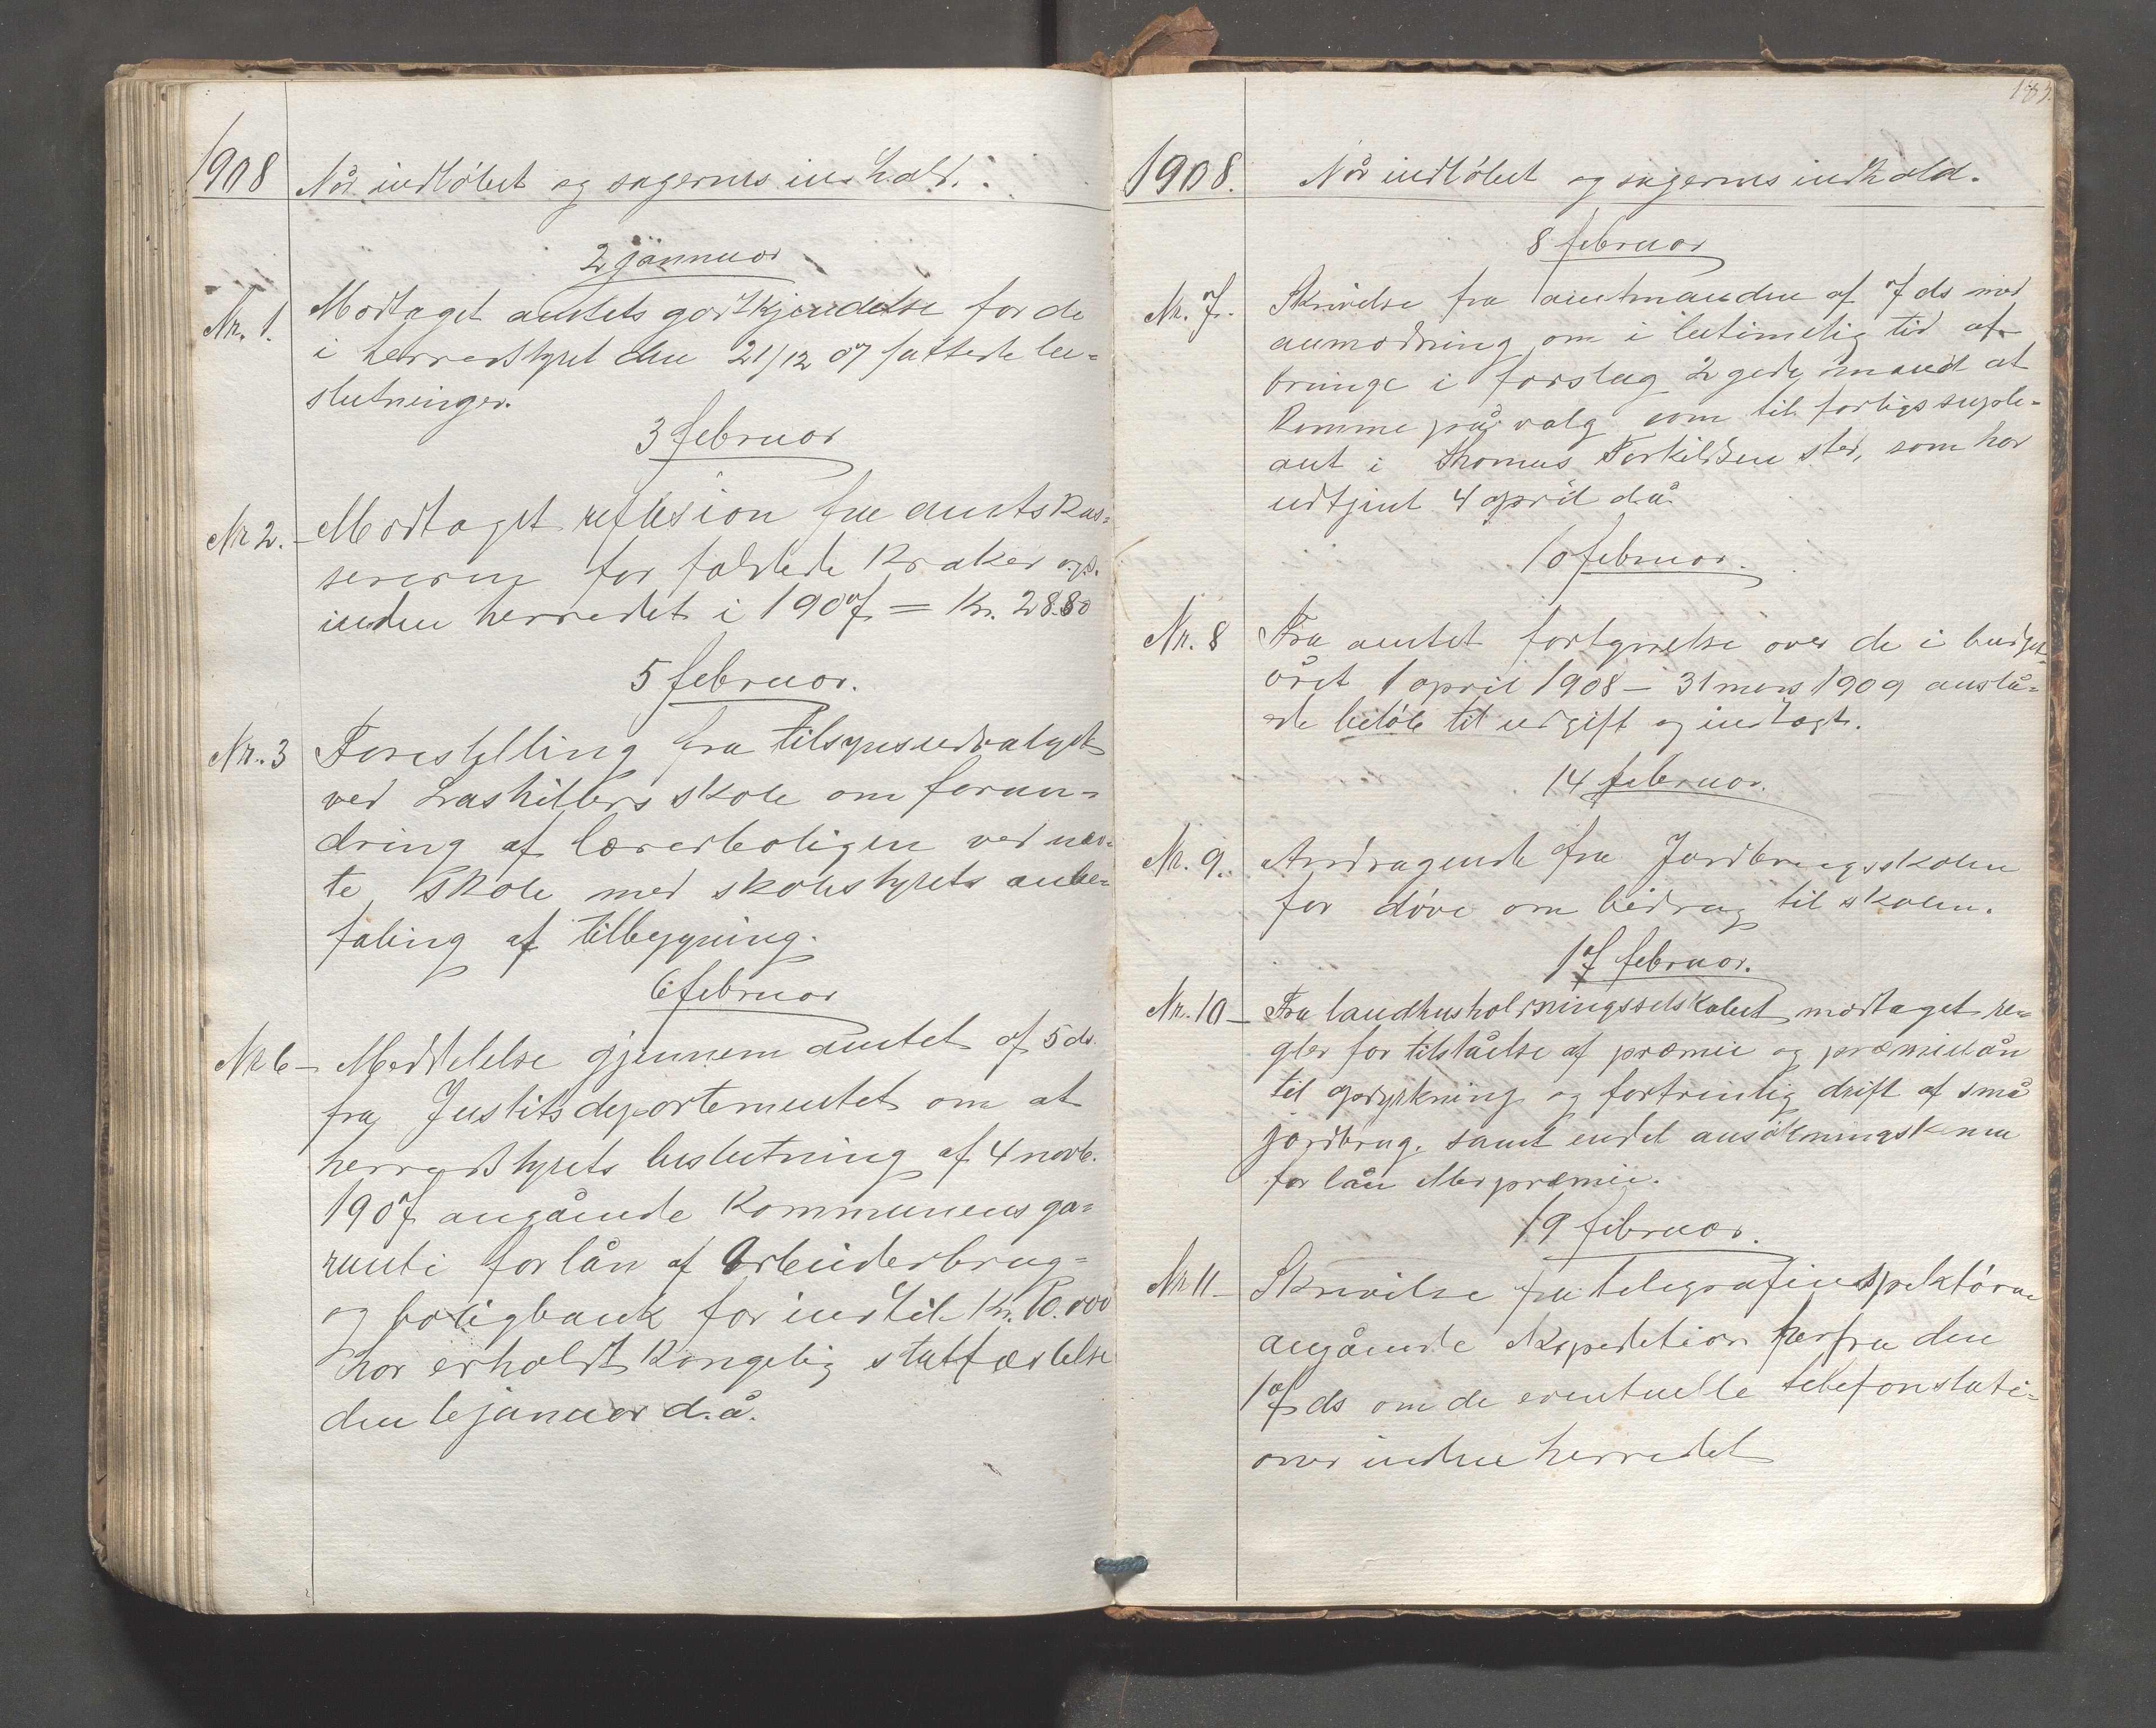 1908 Når indløbet og sagernes inhold.
2 jannuar
Nr. 1. Modtaget amtets godtkjendelse for de
i herredstyret den 21/12 07 fattede be=
slutninger.
3 februar
Nr 2. – Modtaget reflesion fra amtskas=
sereren for faldede kraker ogs.
inden herredet i 1907 = Kr. 28.80
5 februar.
Nr. 3 Forestilling fra tilsynsudvalget
ved skole om foran=
dring af lærerboligen ved næv=
te skole med skolestyrets anbe=
faling af tilbygning.
6 februar
Nr 6 – Meddelelse gjennem amtet af 5 ds.
fra Justitsdepartementet om at
herredstyrets beslutning af 4 novb.
1907 angående kommunens ga=
ranti for lån af Arbeiderbrug=
og boligbank for indtil Kr. 10.000
har erholdt kongelig stadfæstelse
den 6 januar d.å.
185.
1908. Når indløbet og sagernes indhold.
8 februar
Nr. 7. Skrivelse fra amtmanden af 7 ds med
anmodning om i betimelig tid at
bringe i forslag 2 gede mænd at
komme på valg som til forligssuple=
ant i Thomas Torkildsen sted, som har
udtjent 4 april d.å.
10 februar.
Nr. 8 Fra amtet fortegnelse over de i budget=
året 1 april 1908 – 31 mars 1909 anslå=
ede beløb til udgift og indtægt.
14 februar.
Nr. 9. Andragende fra Jordbrugsskolen
for døve om bidrag til skolen.
17 februar.
Nr. 10 – Fra landhusholdningsselskabet modtaget re=
gler for tilståelse af præmie og præmielån
til opdyrkning og fortrinlig drift af små
jordbrug. samt endel ansøkningskema
for lån eller præmie.
19 februar.
Nr 11 – Skrivelse fra telegrafinspektøren
angående ekspedition herfra den
17 ds om de eventuelle telefonstati=
oner inden herredet